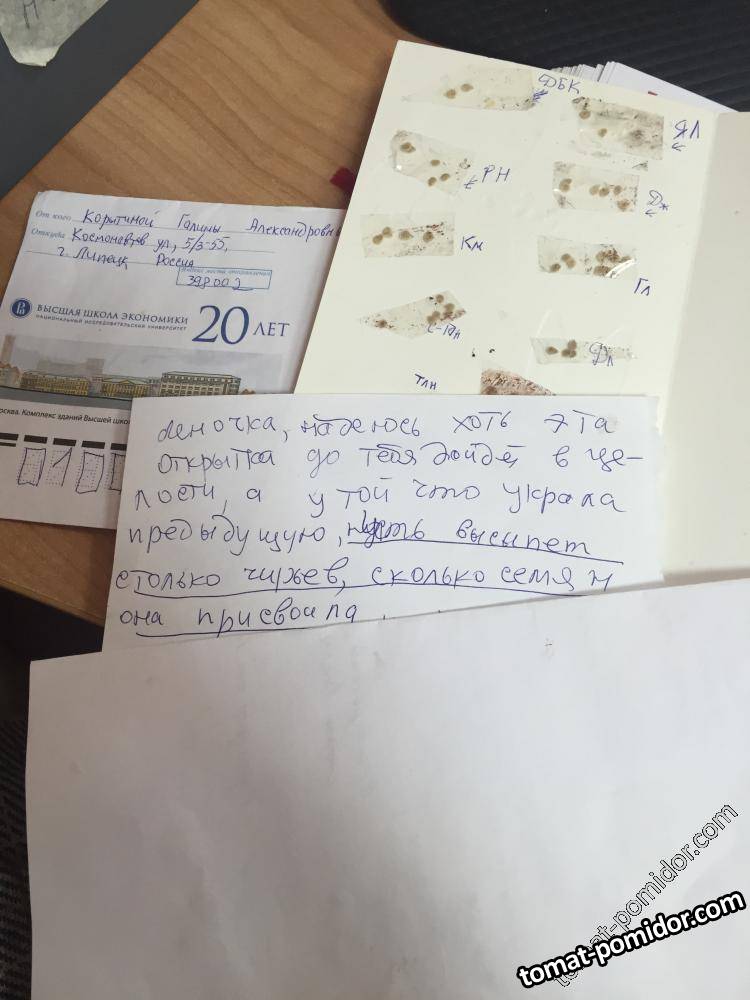 От кого Корытиной Галины Александровны
Откуда Космонавтов ул, 5/3-55,
г. Липецк Россия
398002
ВЫСШАЯ ШКОЛА ЭКОНОМИКИ
НАЦИОНАЛЬНЫЙ ИССЛЕДОВАТЕЛЬСКИЙ УНИВЕРСИТЕТ
20 ЛЕТ
Комплекс зданий Высшей
ДБК
ЯЛ
РН
Дж
Км
Гл
Фл
Тлн
Леночка, надеюсь хоть эта
открытка до тебя дойдёт в це-
лости, а у той что украла
предыдущую, пусть высыпет
столько чирьев, сколько семян
она присвоила
tomat-pomidor.com
tomat-pomidor.com